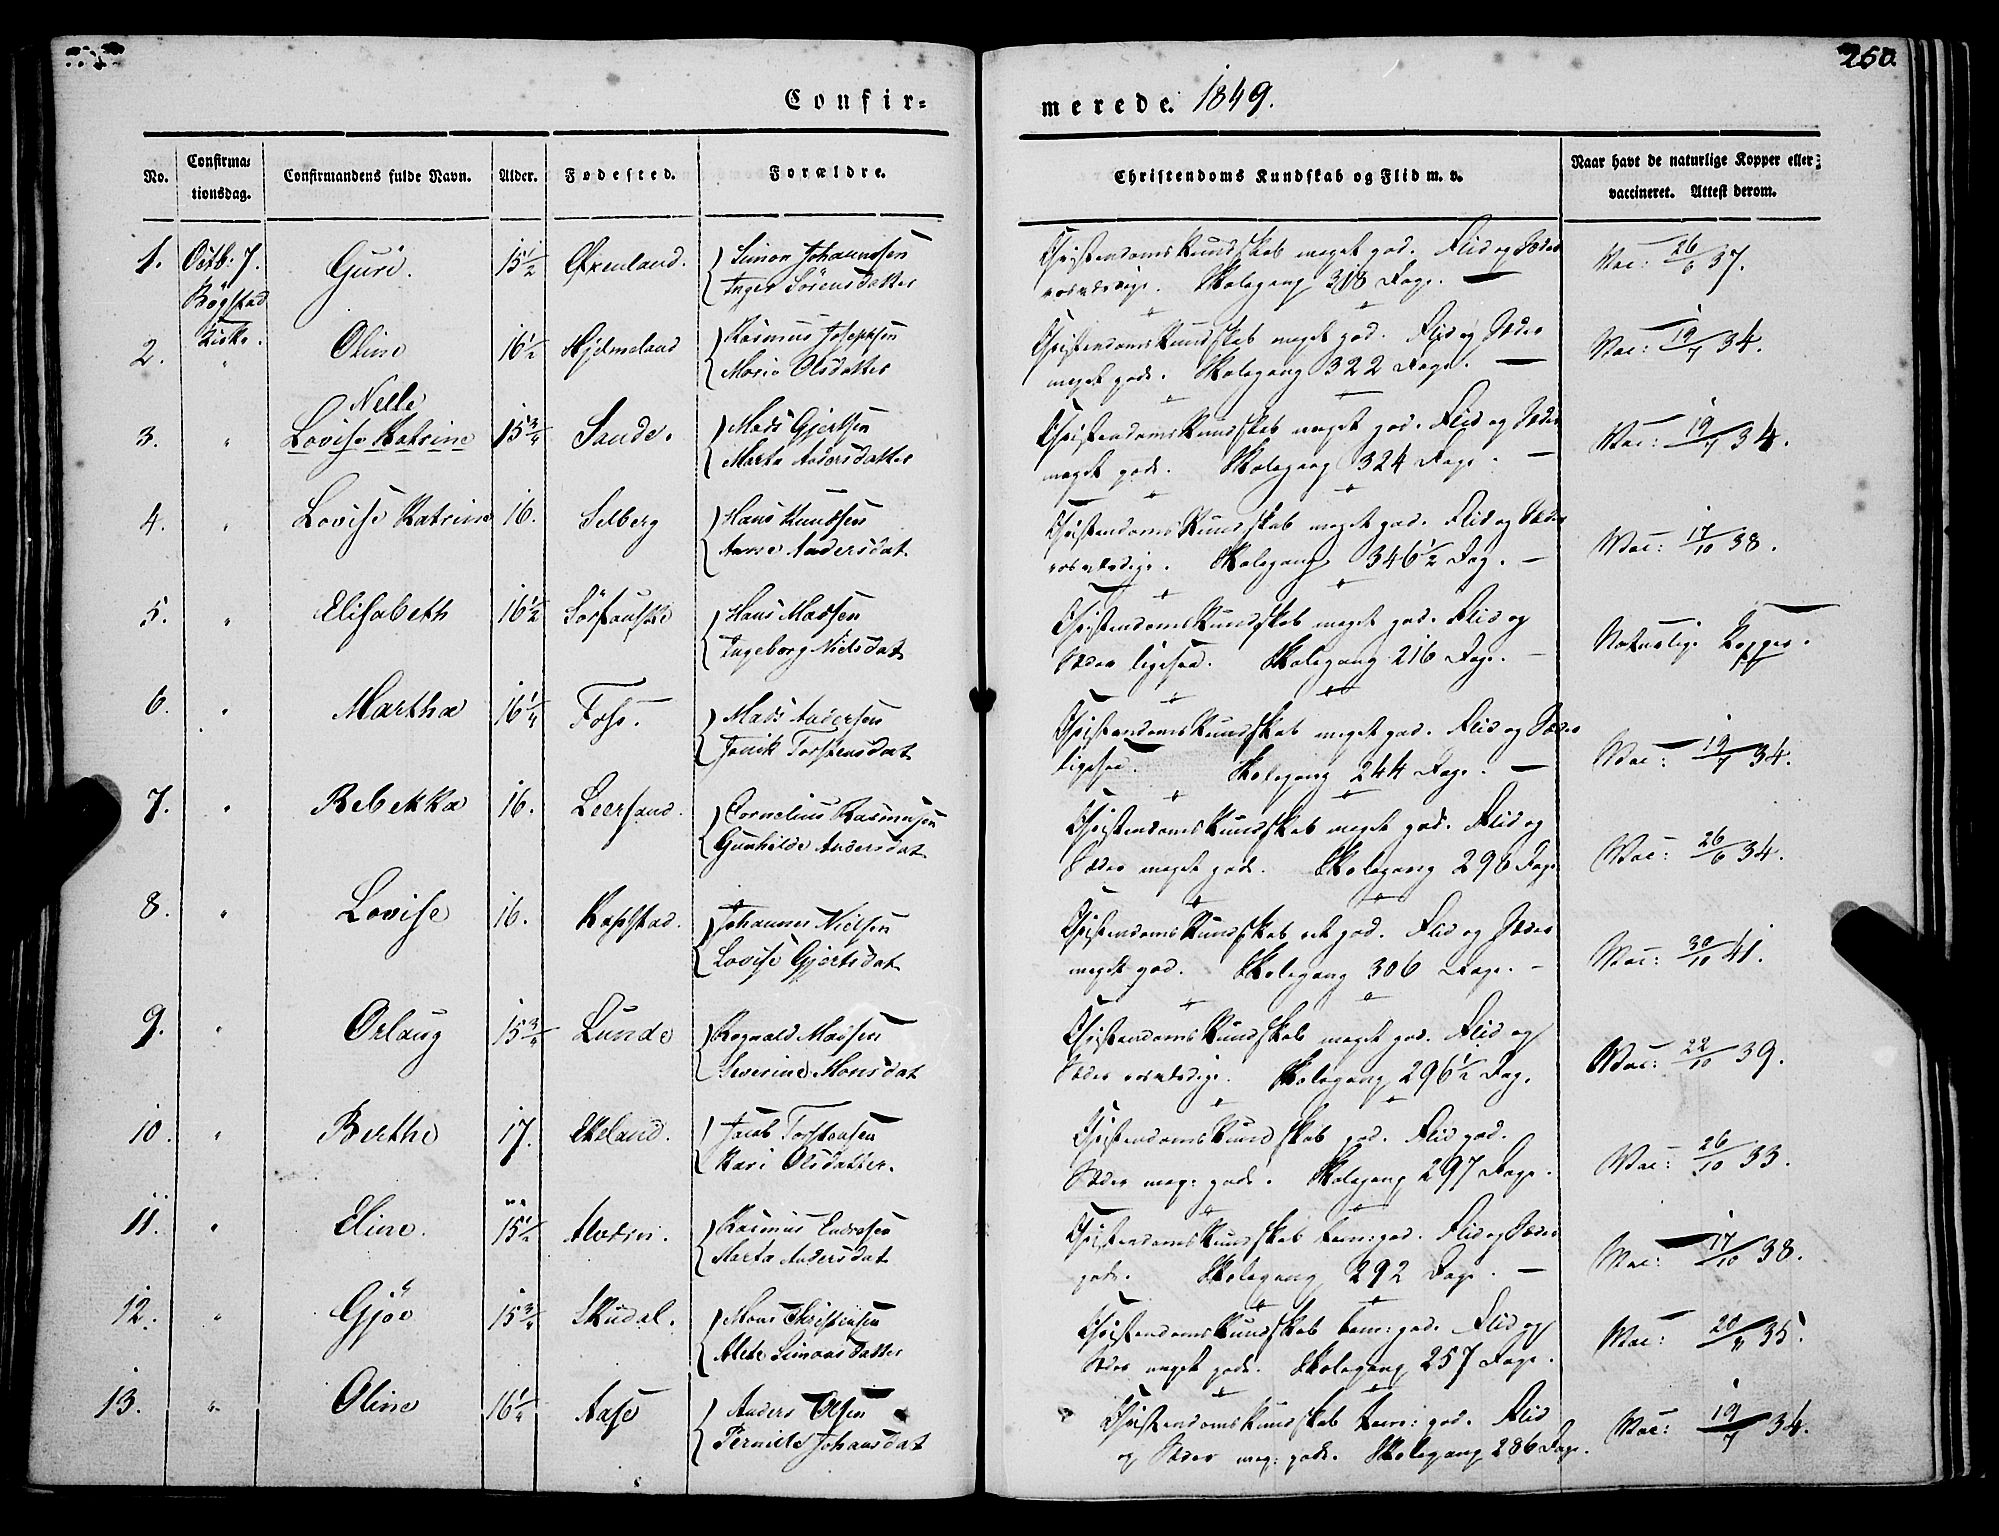 260.
Confir= merede. 1849.
No. Confirma=tionsdag. Confirmandens fulde Navn. Alder. Fødested. Forældre. Christendoms Kundskab og Flid m. v. Naar havt de naturlige Kopper eller vaccineret. Attest derom.
1. Octb: 7. Guri. 15 1/2 Øxenland. Simon Johannssen Christendoms Kundskab meget god. Flid og Sæder Vac: 26/6 37.
Bögstad Kirke. Inger Sörensdatter roesværdige. Skolegang 318 Dage.
2. " Oline 16 1/2 Hjelmeland Rasmus Josephsen Christendoms Kundskab meget god. Flid og Sæder Vac: 19/7 34.
Marie Olsdatter meget gode. Skolegang 322 Dage.
Nelle
3. " Lovise Katrine 15 3/4 Sande. Mads Gjertsen Christendoms Kundskab meget god. Flid og Sæder Vac: 19/7 34.
Marta Andersdatter meget gode. Skolegang 324 Dage.
4. " Lovise Katrine 16. Selberg Hans Knudsen Christendoms Kundskab meget god. Flid og Sæder Vac: 17/10 38.
Anne Andersdat roesværdige. Skolegang 346 1/2 Dag.
5. " Elisabeth 16 1/2 Hans Madsen Christendoms Kundskab meget god. Flid og Naturlige Kopper.
Ingeborg Nielsdat Sæder ligesaa. Skolegang 216 Dage.
6. " Martha 16 1/4 Foss. Mads Andersen Christendoms Kundskab meget god. Flid og Sæder Vac: 19/7 34.
Jonik Torstensdat ligesaa. Skolegang 244 Dage.
7. " Rebekka 16. Leersand. Cornelius Rasmusen Christendoms Kundskab meget god. Flid og Vac: 26/6 34.
Gunhilde Andersdat Sæder meget gode. Skolegang 298 Dage
8. " Lovise 16. Kapstad. Johannes Nielsen Christendoms Kundskab god. Flid og Sæder Vac: 30/10 41.
Lovise Gjertsdat meget god. Skolegang 306 Dage.
9. " Orlaug 15 3/4 Lunde Rognald Madsen Christendoms Kundskab meget god. Flid og Vac: 22/10 39.
Severine Monsdat Sæder roesværdige. Skolegang 296 1/2 Dag.
10. " Berthe 17. Ekeland. Jacob Torstensen Christendoms Kundskab god. Flid god. Vac: 26/10 33.
Kari Olsdatter. Sæder meg: gode. Skolegang 297 Dage.
11. " Eline. 15 1/2 Rasmus Endresen Christendoms Kundskab tem: god. Flid og Sæder Vac: 17/10 38.
Marta Andersdat gode. Skolegang 292 Dage.
12. " Gjöe 15 3/4 Skudal. Mons Christensen Christendoms Kundskab tem: god. Flid og Vac: 20/11 35.
Alete Simonsdatter Sæder meget gode. Skolegang 257 Dage.
13. " Oline 16 1/4 Aase Anders Olsen Christendoms Kundskab tem: god. Flid Vac: 19/7 34.
Pernille Johansdat og Sæder meg: gode. Skolegang 286 Dage.